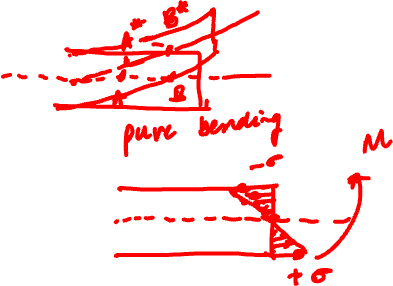 A* B*
A B
pure bending
M
-σ
+σ